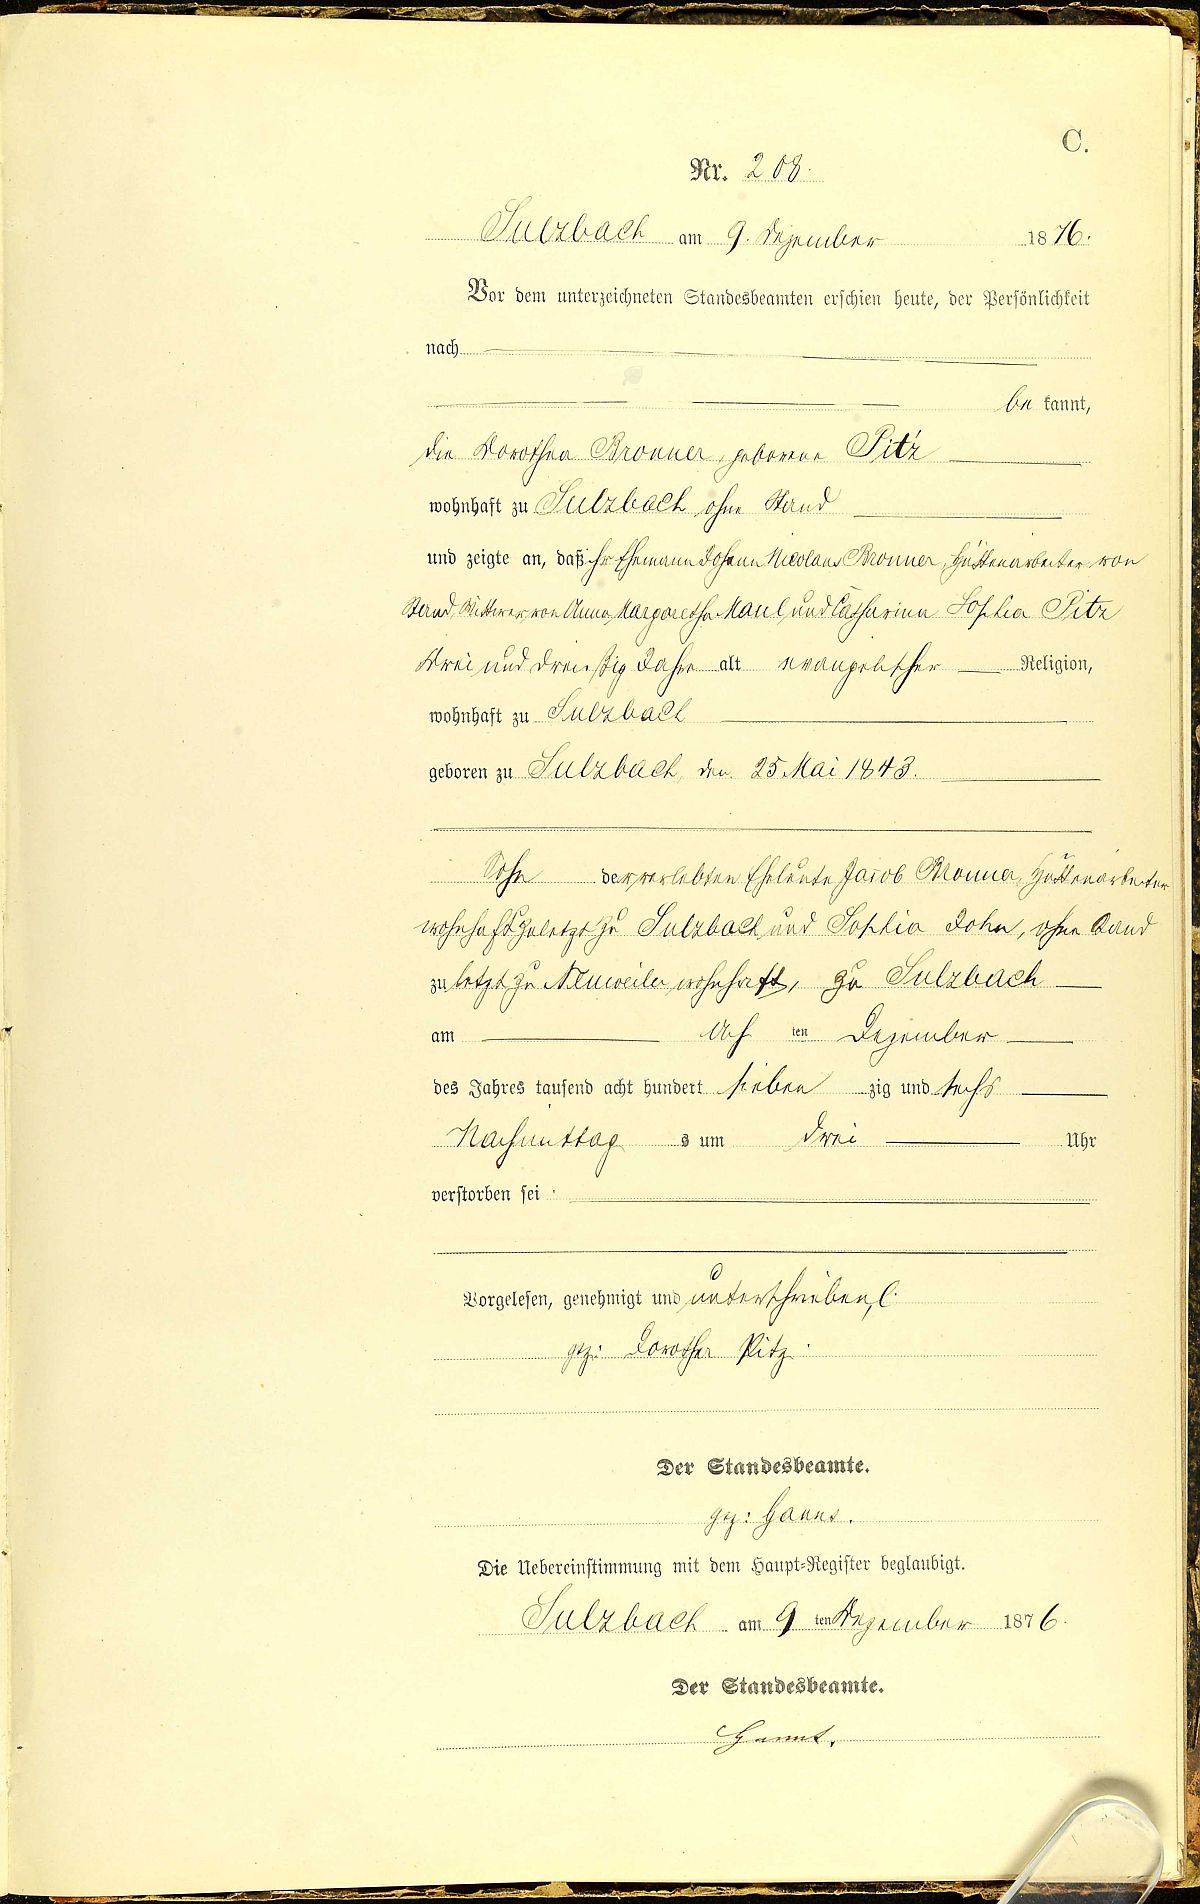 C.
Nr. 208.
Sulzbach am 9. Dezember 1876.
Vor dem unterzeichneten Standesbeamten erschien heute, der Persönlichkeit
nach
be kannt,
die Dorothea Bronner, geborene Pitz
wohnhaft zu Sulzbach ohne Stand
und zeigte an, daß ihr Ehemann Johann Nicolaus Bronner, Hüttenarbeiter von
Stand, Wittwer von Anna Margaretha Maul und Catharina Sophia Pitz
drei und dreißig Jahre alt evangelischer Religion,
wohnhaft zu Sulzbach
geboren zu Sulzbach, den 25. Mai 1843.
Sohn der verlebten Eheleute Jacob Bronner, Hüttenarbeiter
wohnhaft zuletzt zu Sulzbach und Sophia John, ohne Stand
zuletzt zu Neuweiler wohnhaft, zu Sulzbach
am ach ten Dezember
des Jahres tausend acht hundert sieben zig und sechs
Nachmittag s um drei Uhr
verstorben sei.
Vorgelesen, genehmigt und unterschrieben,
gez: Dorothea Pitz.
Der Standesbeamte.
gez:
Die Uebereinstimmung mit dem Haupt-Register beglaubigt.
Sulzbach am 9 ten Dezember 1876.
Der Standesbeamte.